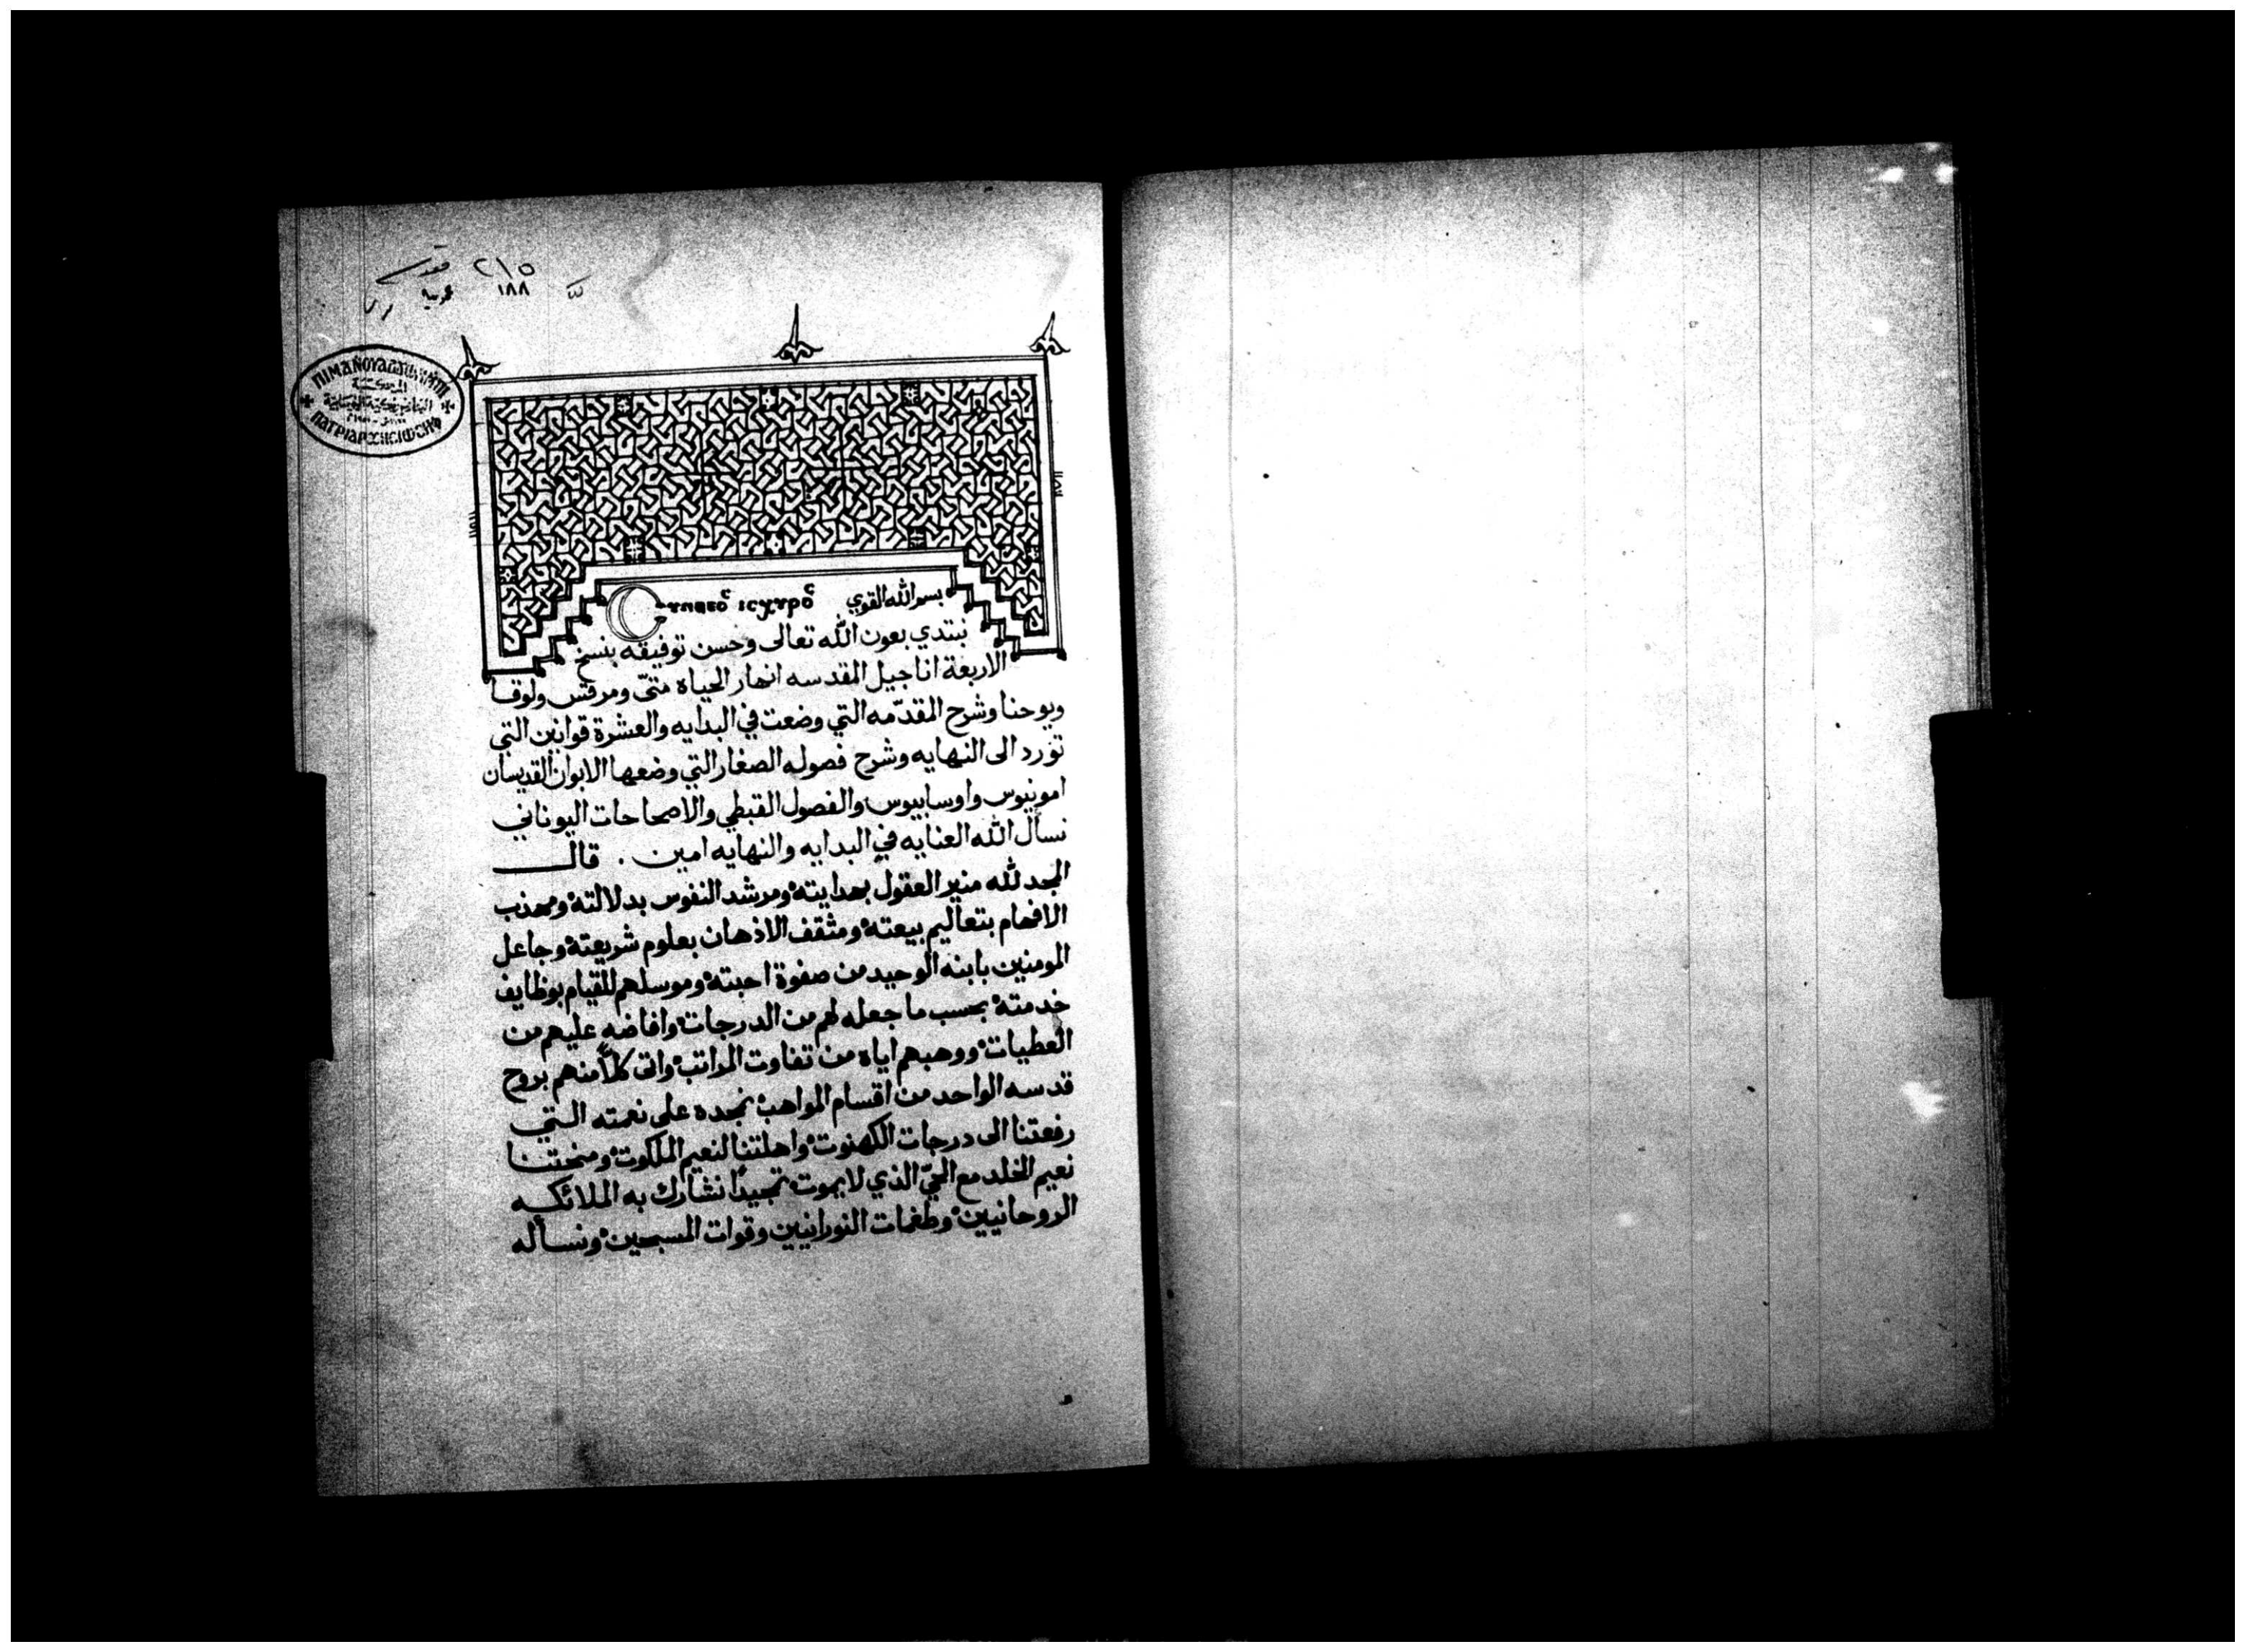 ٢١٥ مقدسة
١٨٨ عربية
ΠΙΜΑΝΟΥ
المكتبة
البطريركية القبطية
ΠΑΤΡΙΑΡΧΗ
بسم الله القوي
نبتدي بعون الله تعالى وحسن توفيقه بنسخ
الاربعة اناجيل المقدسه انهار الحياه متىّ ومرقس ولوقا
ويوحنا وشرح المقدّمه التي وضعت في البدايه والعشرة قوانين التي
تورد الى النهايه وشرح فصوله الصغار التي وضعها الابوان القديسان
امونيوس واوسابيوس والفصول القبطي والاصحاحات اليوناني
نسأل الله العنايه في البدايه والنهايه امين . قال
المجد لله منير العقول بهدايته ومرشد النفوس بدلالته ومهذب
الافهام بتعاليم بيعته ومثقف الاذهان بعلوم شريعته وجاعل
المومنين بابنه الوحيد من صفوة احبته وموسلهم للقيام بوظايف
خدمته بحسب ما جعله لهم من الدرجات وافاضه عليهم من
العطيات ووهبهم اياه من تفاوت المراتب واتى كلاً منهم بروح
قدسه الواحد من اقسام المواهب نمجده على نعمته التي
رفعتنا الى درجات الكهنوت واهلتنا لنعيم الملكوت ومنحتنا
نعيم الخلد مع الحيّ الذي لا يموت تمجيداً نشارك به الملائكيه
الروحانيين وطغمات النورانيين وقوات المسبحين ونسأله